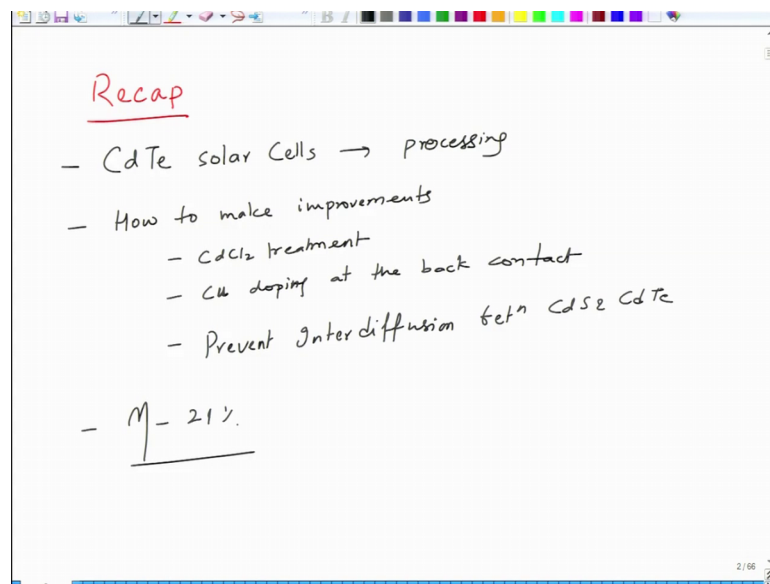 Recap
- CdTe solar Cells → processing
- How to make improvements
- CdCl2 treatment
- Cu doping at the back contact
- Prevent Interdiffusion betn CdS & CdTe
- η - 21%.
2/66